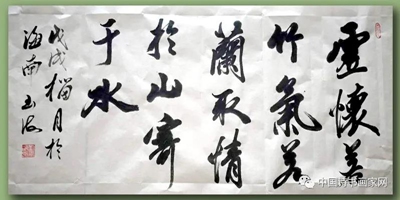 虛懷若
竹氣若
蘭取情
於山寄
于水
戊戌榴月於
海南
中国诗书画家网